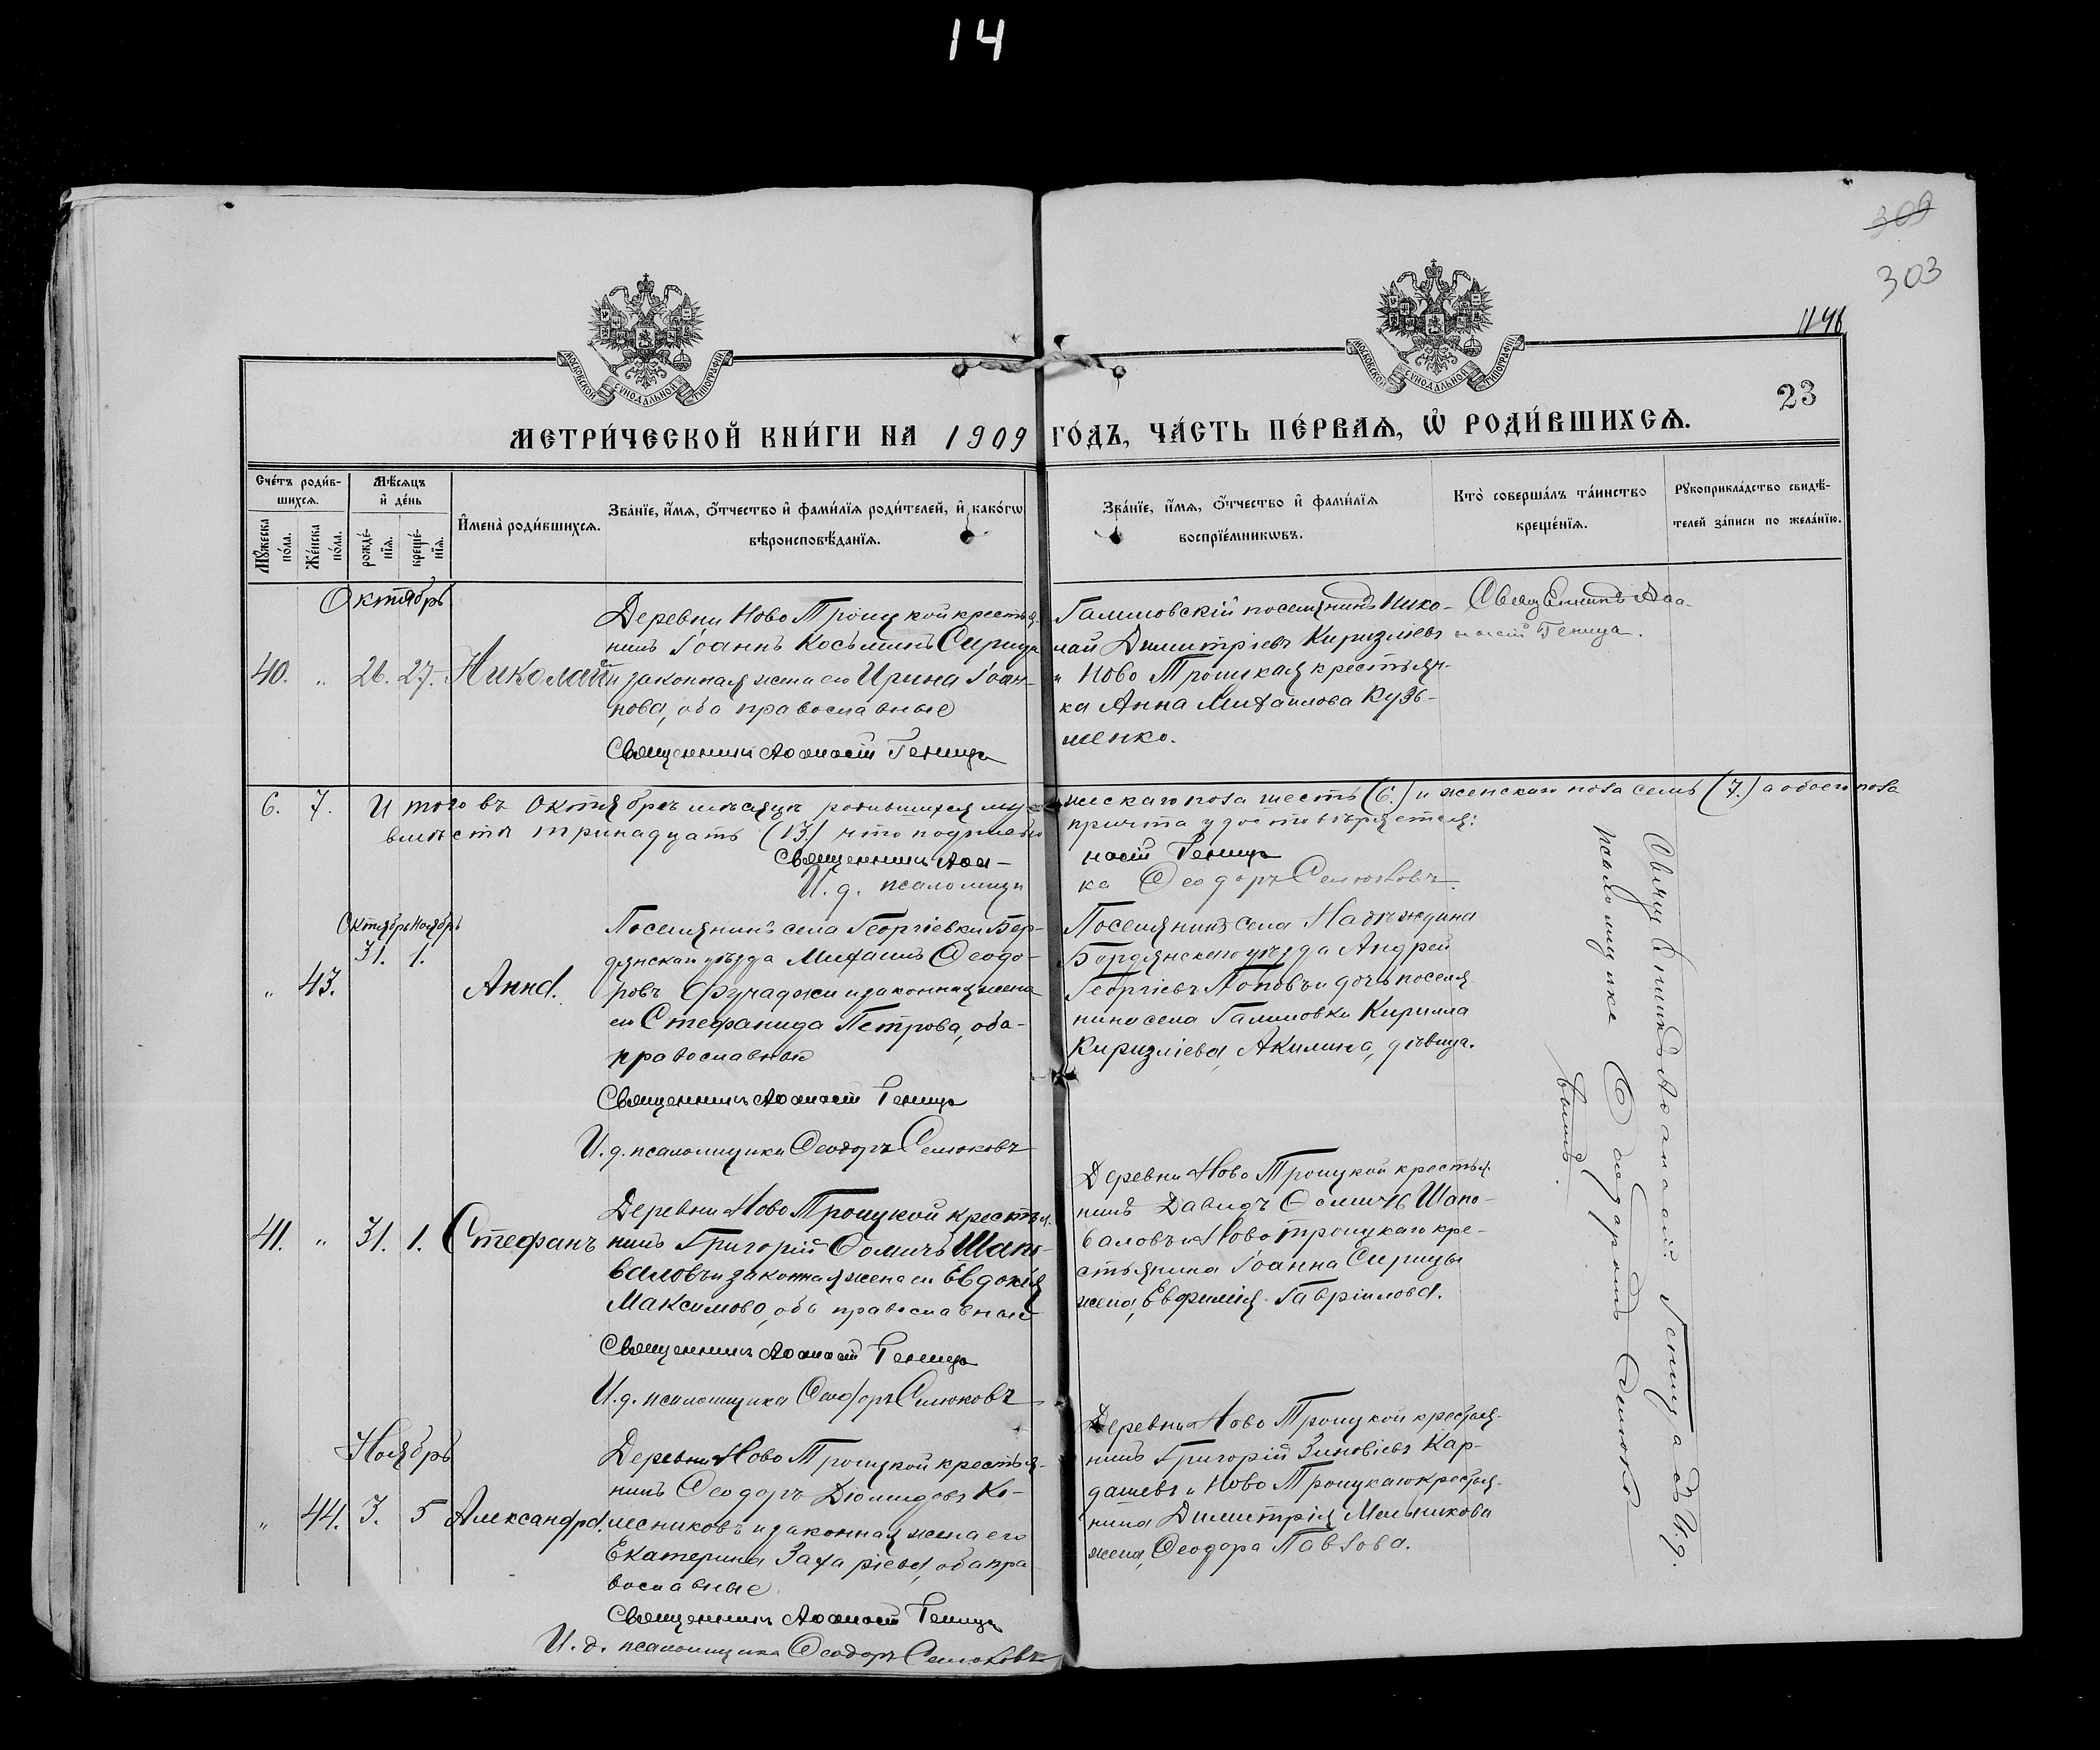 14
309
303
1146
23
МОСКОВСКОЙ СѴНОДАЛЬНОЙ ТИПОГРАФІИ
МОСКОВСКОЙ СѴНОДАЛЬНОЙ ТИПОГРАФІИ
МЕТРИ́ЧЕСКОЙ КНИ́ГИ НА 1909 ГО́ДЪ, ЧА́СТЬ ПЕ́РВАѦ, Ѿ РОДИ́ВШИХСѦ.
Сче́тъ роди́в-
шихсѧ.
Мꙋ́жеска по́ла.
Же́нска по́ла.
Мѣ́сѧцъ
и҆ де́нь
рожде́-
нїѧ.
креще́-
нїѧ.
И҆мена̀ роди́вшихсѧ.
Зва́нїе, и҆́мѧ, ѻ҆́тчество и҆ фами́лїѧ роди́телей, и҆ како́гѡ
вѣроисповѣ́данїѧ.
Зва́нїе, и҆́мѧ, ѻ҆́тчество и҆ фами́лїѧ
воспрїе́мникѡвъ.
Кто̀ соверша́лъ та́инство
креще́нїѧ.
Рꙋкоприкла́дство свидѣ́-
телей за́писи по жела́нїю.
Октябрь
40. „ 26. 27. Николай
Деревни Ново Троицкой крестья-
нинъ Іоаннъ Косьминъ Сирица
и законная жена его Ирина Іоан-
нова, оба православные
Священникъ Аѳанасій Геница
Галиловскій поселянинъ Нико-
лай Димитріевъ Киризліевъ
и Ново Троицкая крестьян-
ка Анна Михаилова Кузь-
менко.
Священникъ Аѳа-
насій Геница.
6. 7. Итого въ Октябрѣ мѣсяцѣ родившихся мужескаго пола шесть (6.) и женскаго пола семь (7.) а обоего пола
вмѣстѣ тринадцать (13.) что подписью причта удостовѣряется:
Священникъ Аѳанасій Геница
И. д. псаломщика Ѳеодоръ Семоковъ.
Октябрь Ноябрь
„ 43. 31. 1. Анна.
Поселянинъ села Георгіевки Бер-
дянскаго уѣзда Михаилъ Ѳеодо-
ровъ Фучаджи и законная жена
его Стефанида Петрова, оба
православные
Священникъ Аѳанасій Геница
И. д. псаломщика Ѳеодоръ Семоковъ
Поселянинъ села Надеждина
Бердянскаго уѣзда Андрей
Георгіевъ Поповъ и дочь поселя-
нина села Галиловки Кирилла
Киризліева, Акилина, дѣвица.
41. „ 31. 1. Стефанъ
Деревни Ново Троицкой крестья-
нинъ Григорій Ѳомичъ Шапо-
валовъ и законная жена его Евдокія
Максимова, оба православные
Священникъ Аѳанасій Геница
И. д. псаломщика Ѳеодоръ Семоковъ
Деревни Ново Троицкой крестья-
нинъ Давидъ Ѳомичъ Шапо-
валовъ и Ново Троицкаго кре-
стьянина Іоанна Сирицы
жена, Евфимія Гавріилова.
Ноябрь
„ 44. 3. 5 Александра.
Деревни Ново Троицкой крестья-
нинъ Ѳеодоръ Діомидовъ Ко-
лесниковъ и законная жена его
Екатерина Захаріева, оба пра-
вославные
Священникъ Аѳанасій Геница
И. д. псаломщика Ѳеодоръ Семоковъ
Деревни Ново Троицкой крестья-
нинъ Григорій Зиновіевъ Кар-
дашевъ и Ново Троицкаго крестья-
нина Димитрія Мельникова
жена, Ѳеодора Павлова.
Священникъ Аѳанасій Геница съ И. д.
псаломщика Ѳеодоромъ Семоко-
вымъ.